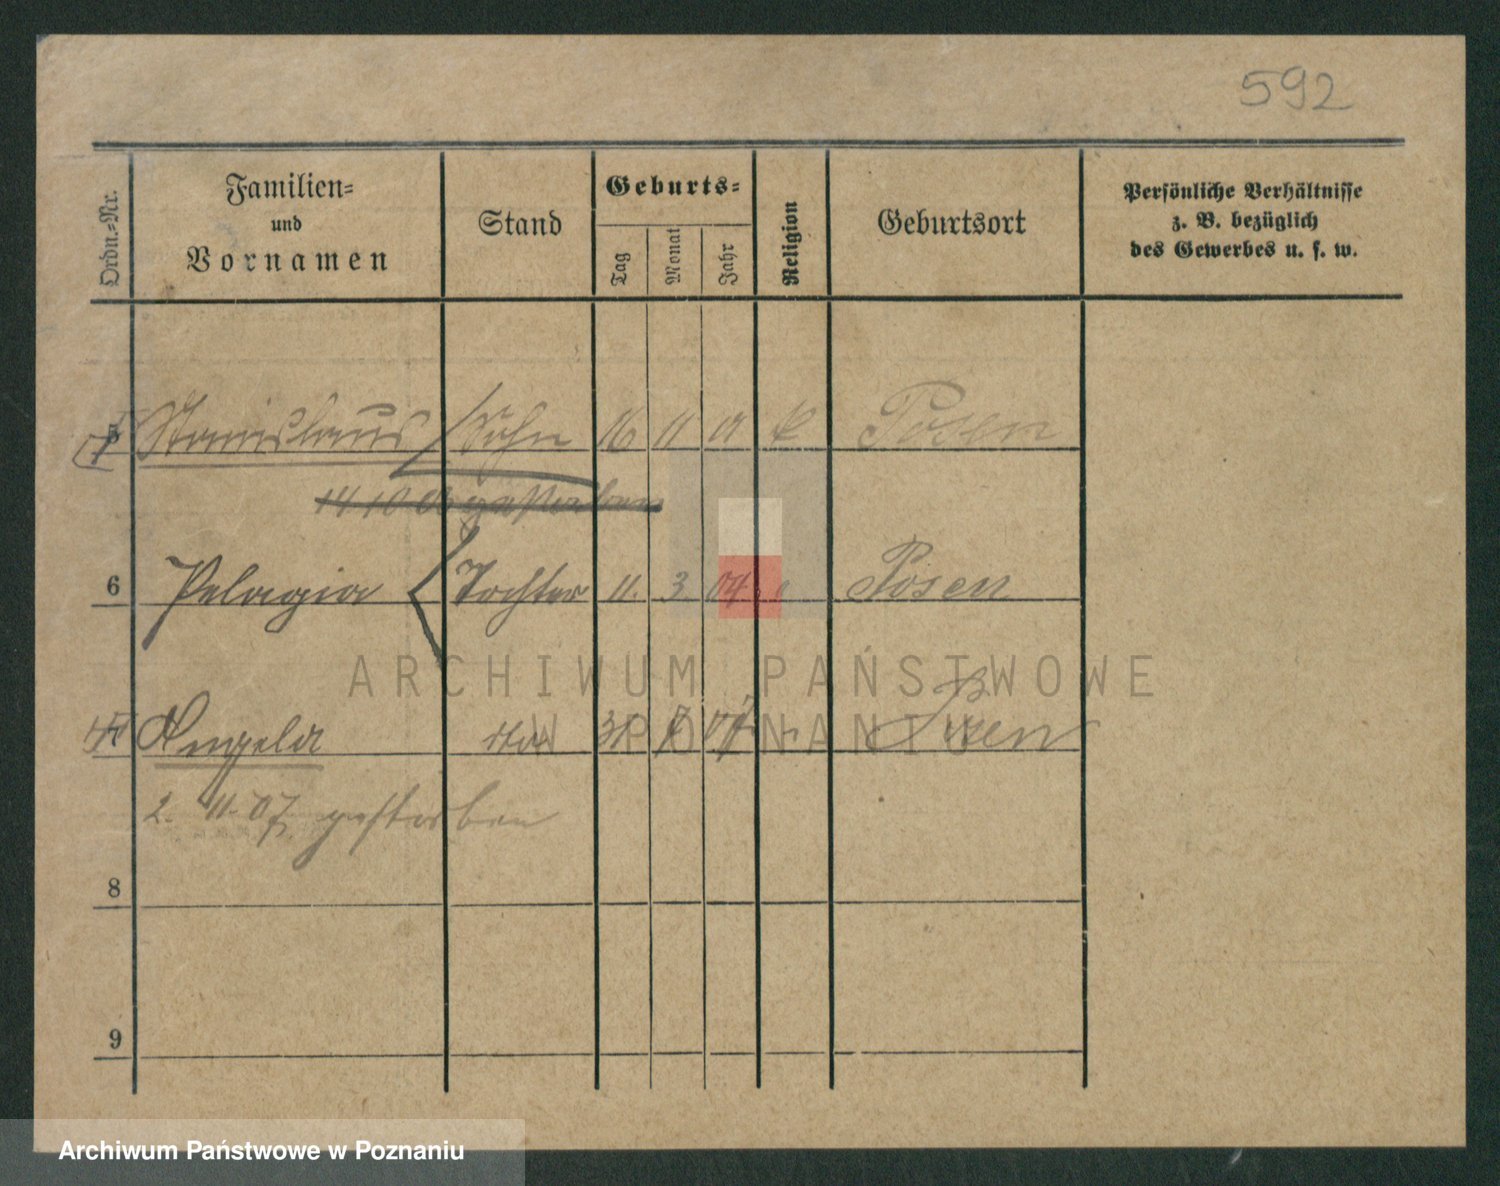 592
Ordn.-Nr.
Familien-
und
Vornamen
Stand
Geburts-
Tag
Monat
Jahr
Religion
Geburtsort
Persönliche Verhältnisse
z. B. bezüglich
des Gewerbes u. s. w.
5 Stanislaus Sohn 16 11 k Posen
14 10 gestorben
6 Pelagia Tochter 11. 3. 04 Posen
7 Angela 31 7 07 Posen
2. 11. 07. gestorben
8
9
ARCHIWUM PAŃSTWOWE
W POZNANIU
Archiwum Państwowe w Poznaniu